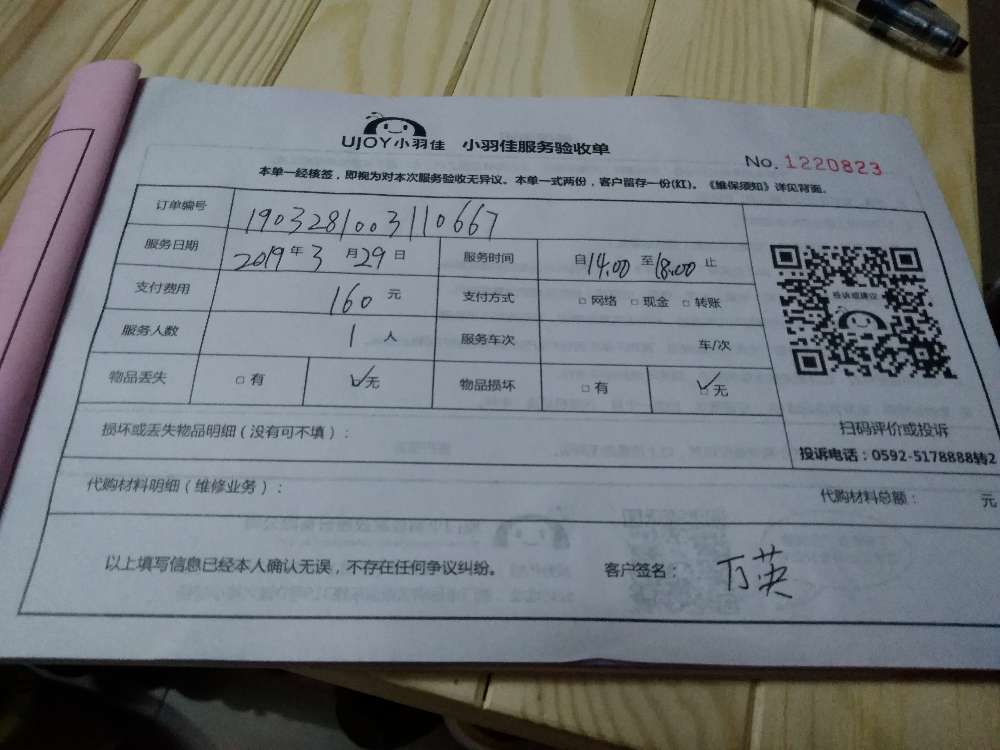 UJOY小羽佳 小羽佳服务验收单
No. 1220823
本单一经核签，即视为对本次服务验收无异议。本单一式两份，客户留存一份(红)。《维保须知》详见背面。
订单编号 1903281003110667
服务日期 2019年3月29日 服务时间 自14:00至18:00止
支付费用 160元 支付方式 □网络 □现金 □转账
服务人数 1人 服务车次 车/次
物品丢失 □有 ☑无 物品损坏 □有 ☑无
投诉或建议
扫码评价或投诉
投诉电话：0592-5178888转2
损坏或丢失物品明细（没有可不填）：
代购材料明细（维修业务）： 代购材料总额： 元
以上填写信息已经本人确认无误，不存在任何争议纠纷。 客户签名：万英